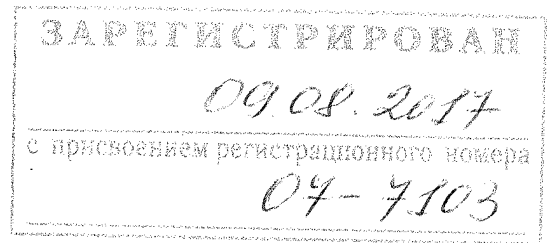 ЗАРЕГИСТРИРОВАН
09.08.2017
с присвоением регистрационного номера
07-7103